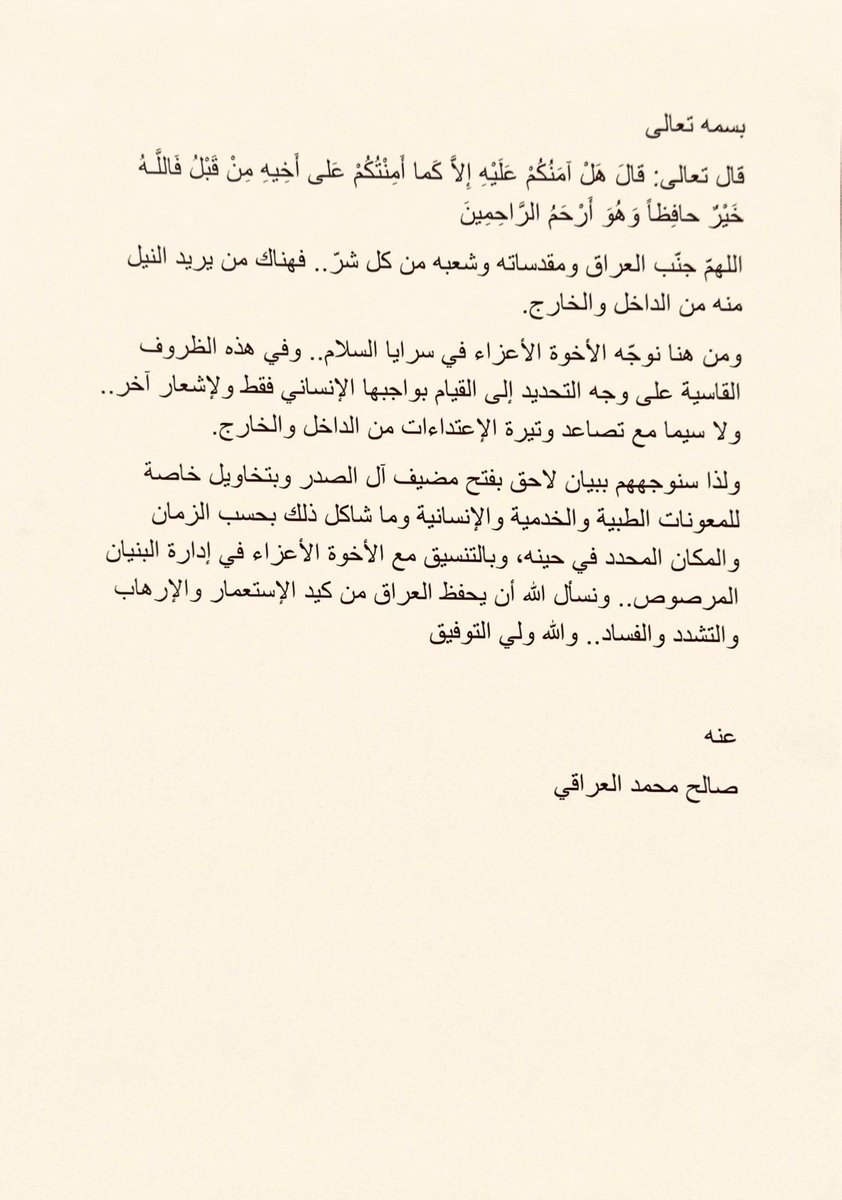 بسمه تعالى
قال تعالى: قالَ هَلْ آمَنُكُمْ عَلَيْهِ إِلاَّ كَما أَمِنْتُكُمْ عَلى أَخِيهِ مِنْ قَبْلُ فَاللَّـهُ
خَيْرٌ حافِظاً وَهُوَ أَرْحَمُ الرَّاحِمِينَ
اللهمّ جنّب العراق ومقدساته وشعبه من كل شرّ.. فهناك من يريد النيل
منه من الداخل والخارج.
ومن هنا نوجّه الأخوة الأعزاء في سرايا السلام.. وفي هذه الظروف
القاسية على وجه التحديد إلى القيام بواجبها الإنساني فقط ولإشعار آخر..
ولا سيما مع تصاعد وتيرة الإعتداءات من الداخل والخارج.
ولذا سنوجههم ببيان لاحق بفتح مضيف آل الصدر وبتخاويل خاصة
للمعونات الطبية والخدمية والإنسانية وما شاكل ذلك بحسب الزمان
والمكان المحدد في حينه، وبالتنسيق مع الأخوة الأعزاء في إدارة البنيان
المرصوص.. ونسأل الله أن يحفظ العراق من كيد الإستعمار والإرهاب
والتشدد والفساد.. والله ولي التوفيق
عنه
صالح محمد العراقي